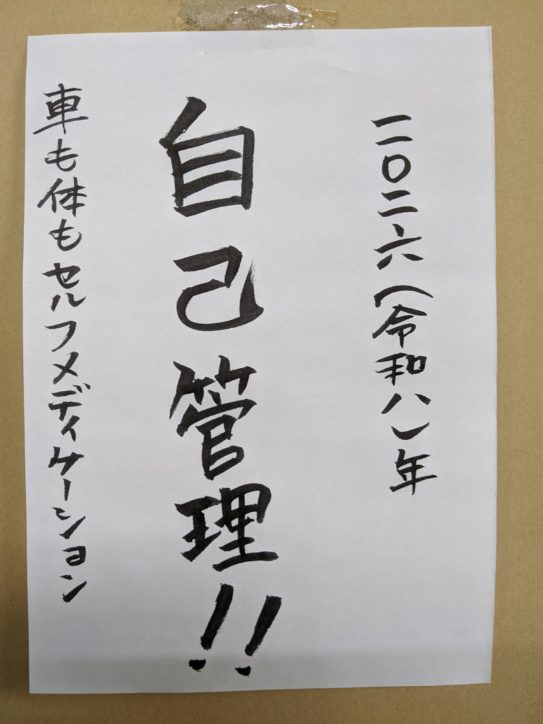 二〇二六（令和八）年
自己管理!!
車も体もセルフメディケーション